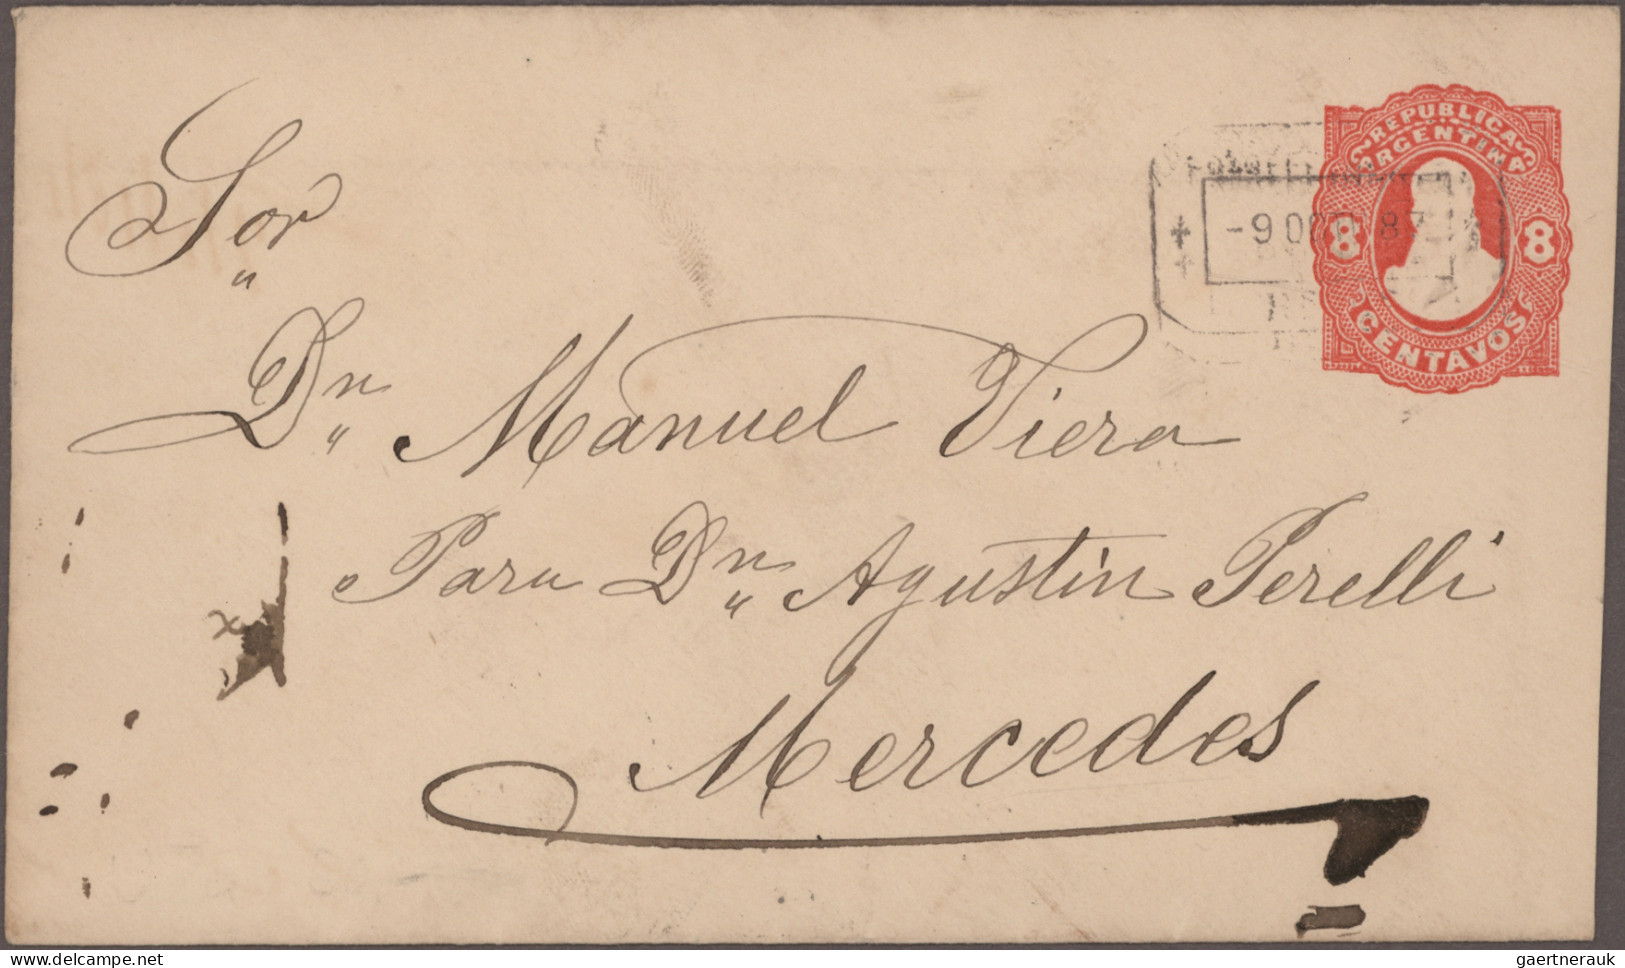 REPUBLICA
ARGENTINA
8 8
CENTAVOS
-9 OCT 87
Sor
Dn Manuel Viera
Para Dn Agustin Perelli
Mercedes
www.delcampe.net
gaertnerauk